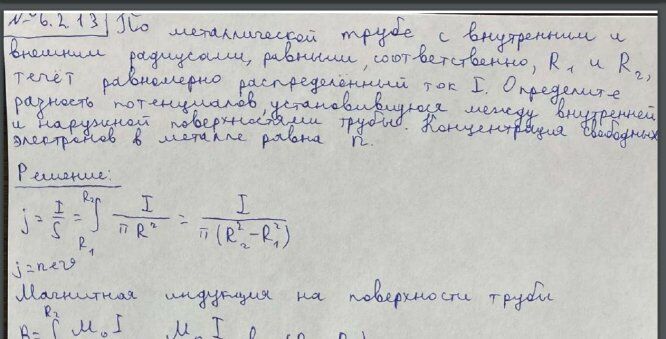 № 6.2.13 По металлической трубе с внутренним и
внешним радиусами, равными, соответственно, R₁ и R₂,
течёт равномерно распределённый ток I. Определите
разность потенциалов, установившуюся между внутренней
и наружной поверхностями трубы. Концентрация свободных
электронов в металле равна n.
Решение:
j = I/S = ∫_{R₁}^{R₂} I/(πR²) = I/(π(R₂² - R₁²))
j = nev
Магнитная индукция на поверхности трубы